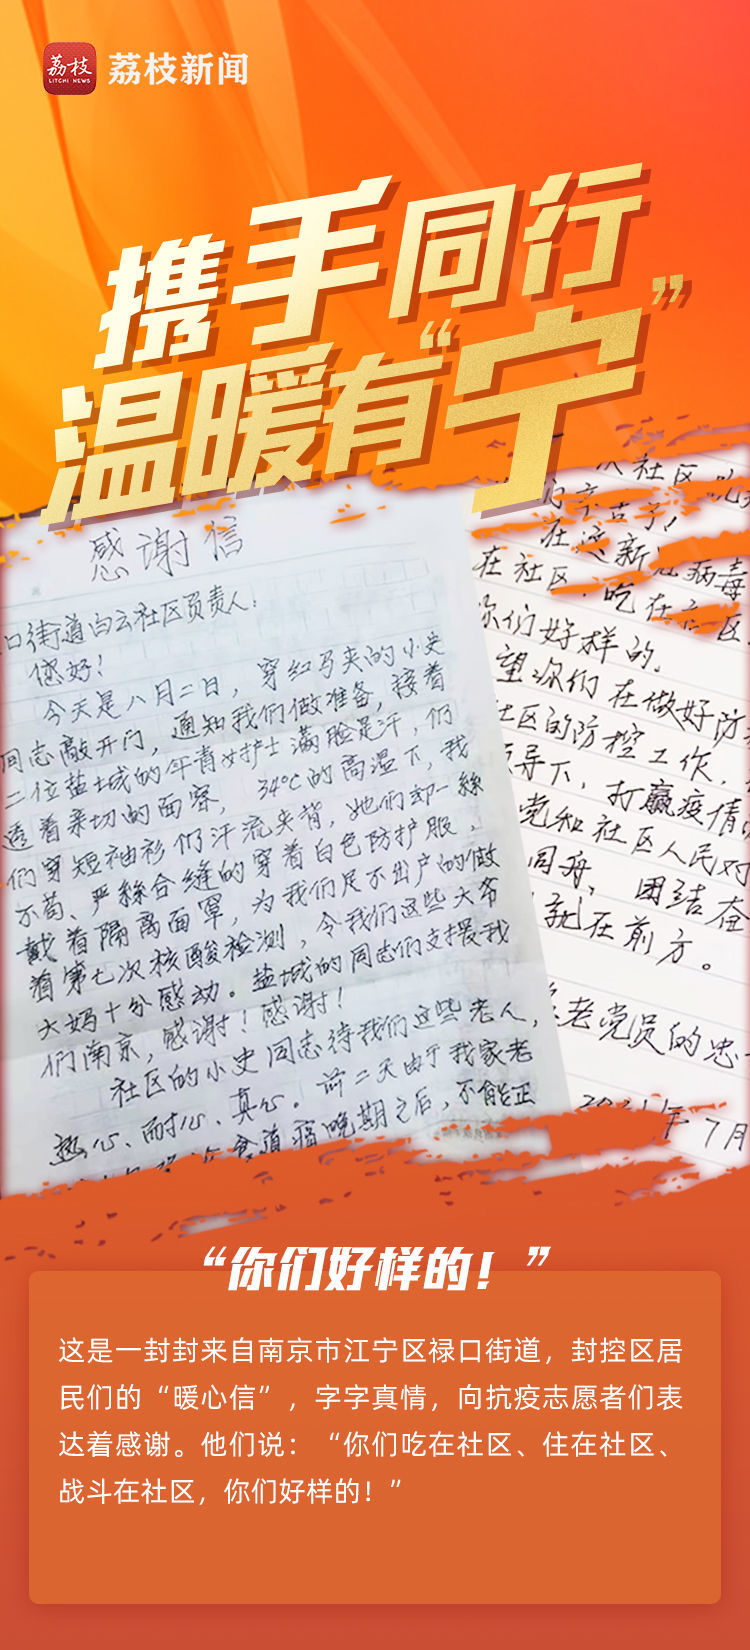 荔枝
LITCHI NEWS
荔枝新闻
携手同行
温暖有“宁”
感谢信
口街道白云社区负责人:
您好!
今天是八月二日，穿红马夹的小史
同志敲开门，通知我们做准备，接着
二位盐城的年青女护士满脸是汗，仍
透着亲切的面容，34℃的高温下，我
们穿短袖衫仍汗流夹背，她们却一丝
不苟、严丝合缝的穿着白色防护服，
戴着隔离面罩，为我们足不出户的做
着第七次核酸检测，令我们这些大爷
大妈十分感动。盐城的同志们支援我
们南京，感谢！感谢！
社区的小史同志待我们这些老人，
热心、耐心、真心。前二天由于我家老
食道癌晚期之后，不能正
社区
在
新 病毒
在社区，吃在 区
你们好样的。
望你们在做好防
社区的防控工作，
导下，打赢疫情
党和社区人民对
同舟，团结奋
就在前方。
老党员的忠
年7月
“你们好样的！”
这是一封封来自南京市江宁区禄口街道，封控区居
民们的“暖心信”，字字真情，向抗疫志愿者们表
达着感谢。他们说：“你们吃在社区、住在社区、
战斗在社区，你们好样的！”